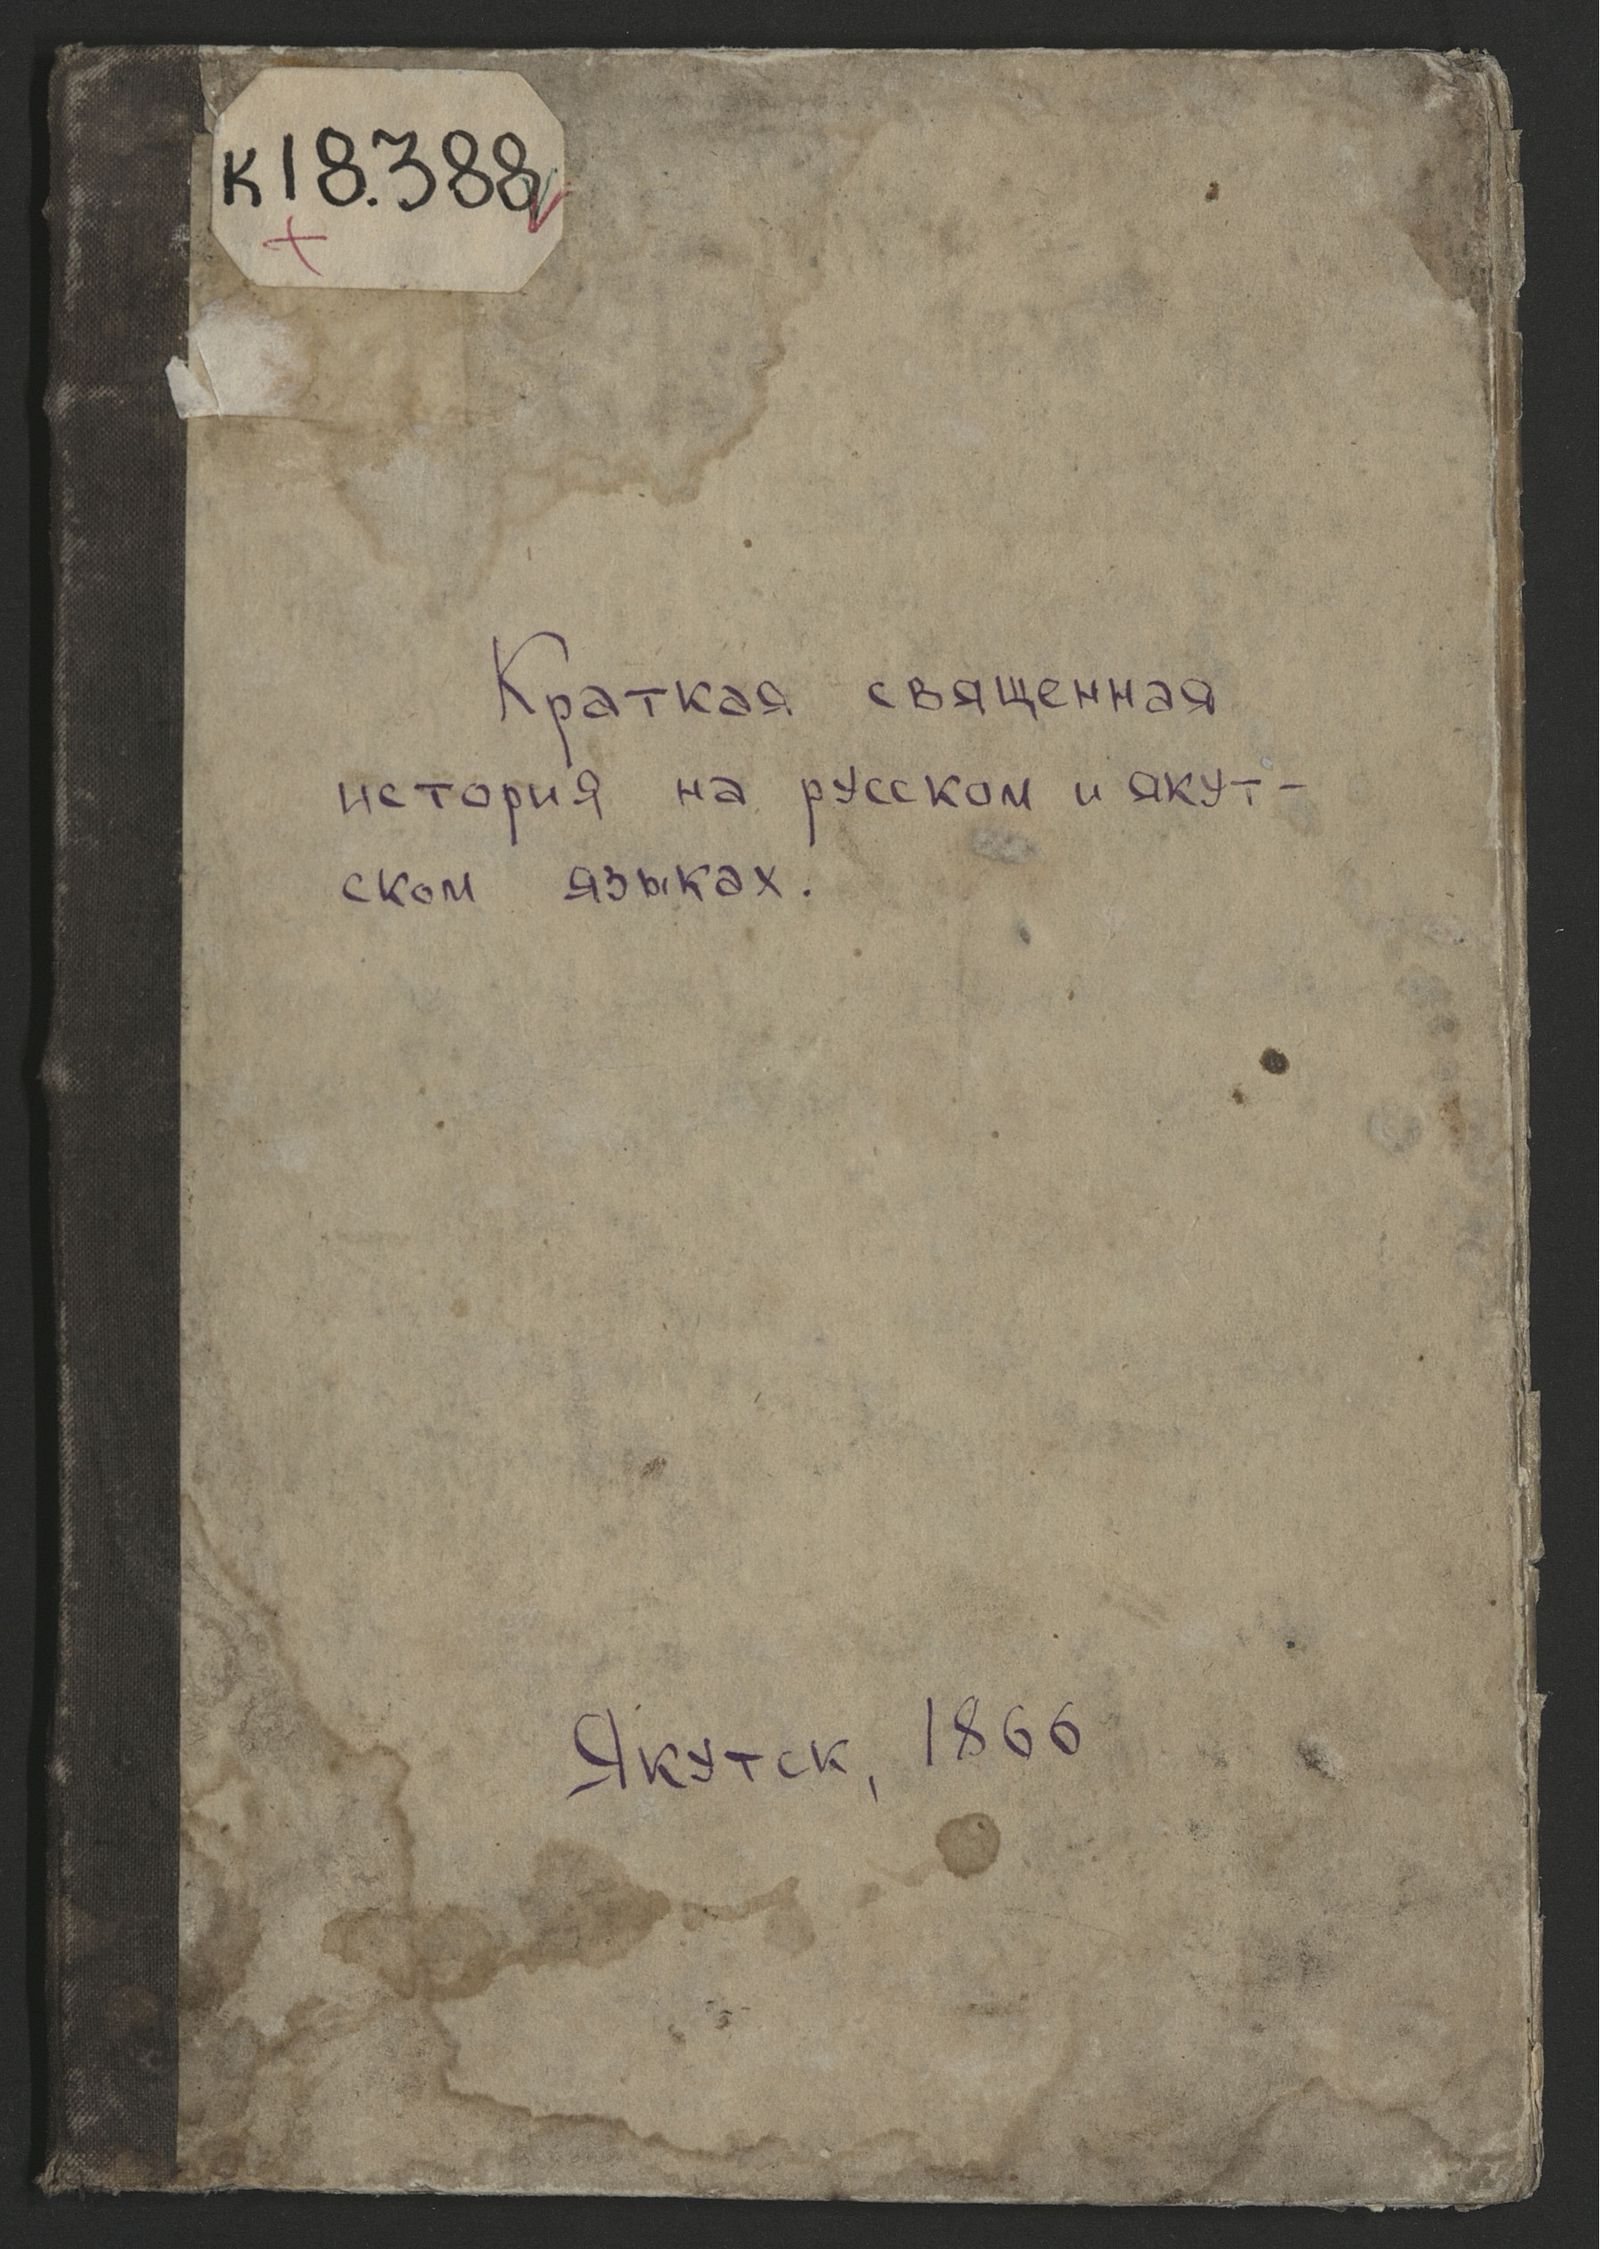 к18.388
Краткая священная
история на русском и якут-
ском языках.
Якутск, 1866